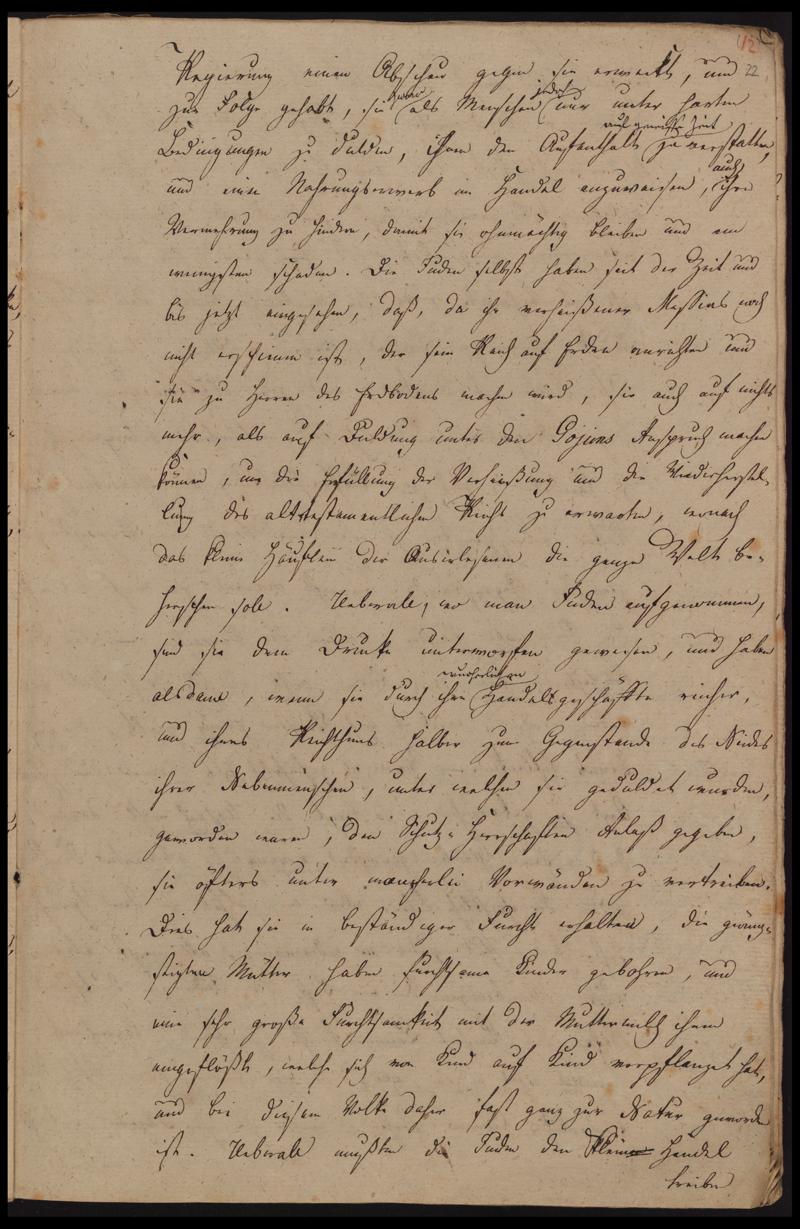 12
22
Regierung einen Abscheu gegen sie erweckt, und
zur Folge gehabt, sie zwar als Menschen jedoch nur unter harten
Bedingungen zu dulden, ihnen den Aufenthalt auf gewisse Zeit zu verstatten,
und einen Nahrungserwerb im Handel anzuweisen, auch ihre
Vermehrung zu hindern, damit sie ohnmächtig bleiben und am
wenigsten schaden. Die Juden selbst haben seit der Zeit und
bis jetzt eingesehen, daß, da ihr verheißener Messias noch
nicht erschienen ist, der sein Reich auf Erden anrichten und
sie zu Herren des Erdbodens machen wird, sie auch auf nichts
mehr, als auf Duldung unter den Gojims Anspruch machen
können, um die Erfüllung der Verheißung und die Wiederherstel-
lung des alttestamentlichen Reichs zu erwarten, wonach
das kleine Häuflein der Auserlesenen die ganze Welt be-
herrschen soll. Ueberall, wo man Juden aufgenommen,
sind sie dem Drucke unterworfen gewesen, und haben
alsdann, wenn sie durch ihre wucherlichen Handelsgeschäffte reicher,
und ihres Reichthums halber zum Gegenstande des Neides
ihrer Nebenmenschen, unter welchen sie geduldet wurden,
geworden waren, den Schutz-Herrschaften Anlaß gegeben,
sie öfters unter mancherlei Vorwänden zu vertreiben.
Dies hat sie in beständiger Furcht erhalten, die geäng-
stigten Mütter haben furchtsame Kinder gebohren, und
eine sehr große Furchtsamkeit mit der Muttermilch ihnen
eingeflößt, welche sich von Kind auf Kind verpflanzet hat,
und bei diesem Volke daher fast ganz zur Natur geworden
ist. Ueberall mußten die Juden den Handel
treiben